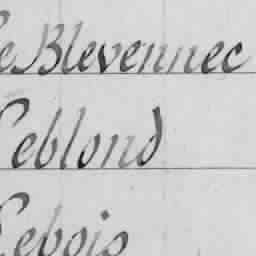 Le Blevennec
Leblond
Lebois